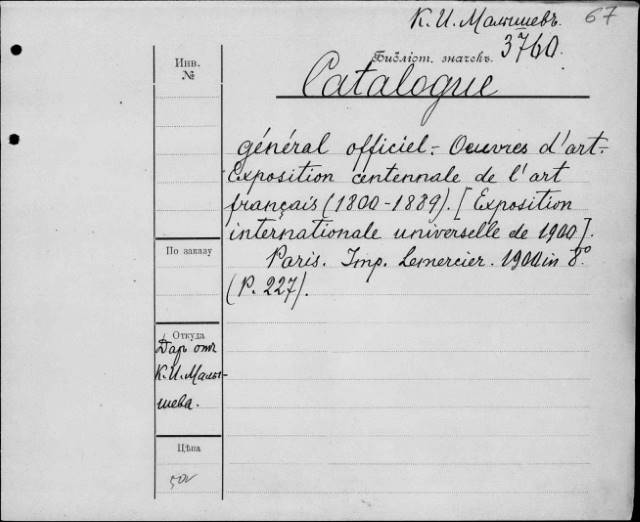 К. И. Малышевъ. 67
3760.
Инв.
№
Библіот. значекъ.
Catalogue
général officiel. - Oeuvres d'art. -
Exposition centennale de l'art
français (1800-1889). [Exposition
internationale universelle de 1900].
По заказу
Paris. Imp. Lemercier. 1900 in 8º.
(P. 227).
Откуда
Даръ отъ
К. И. Малы-
шева.
Цѣна